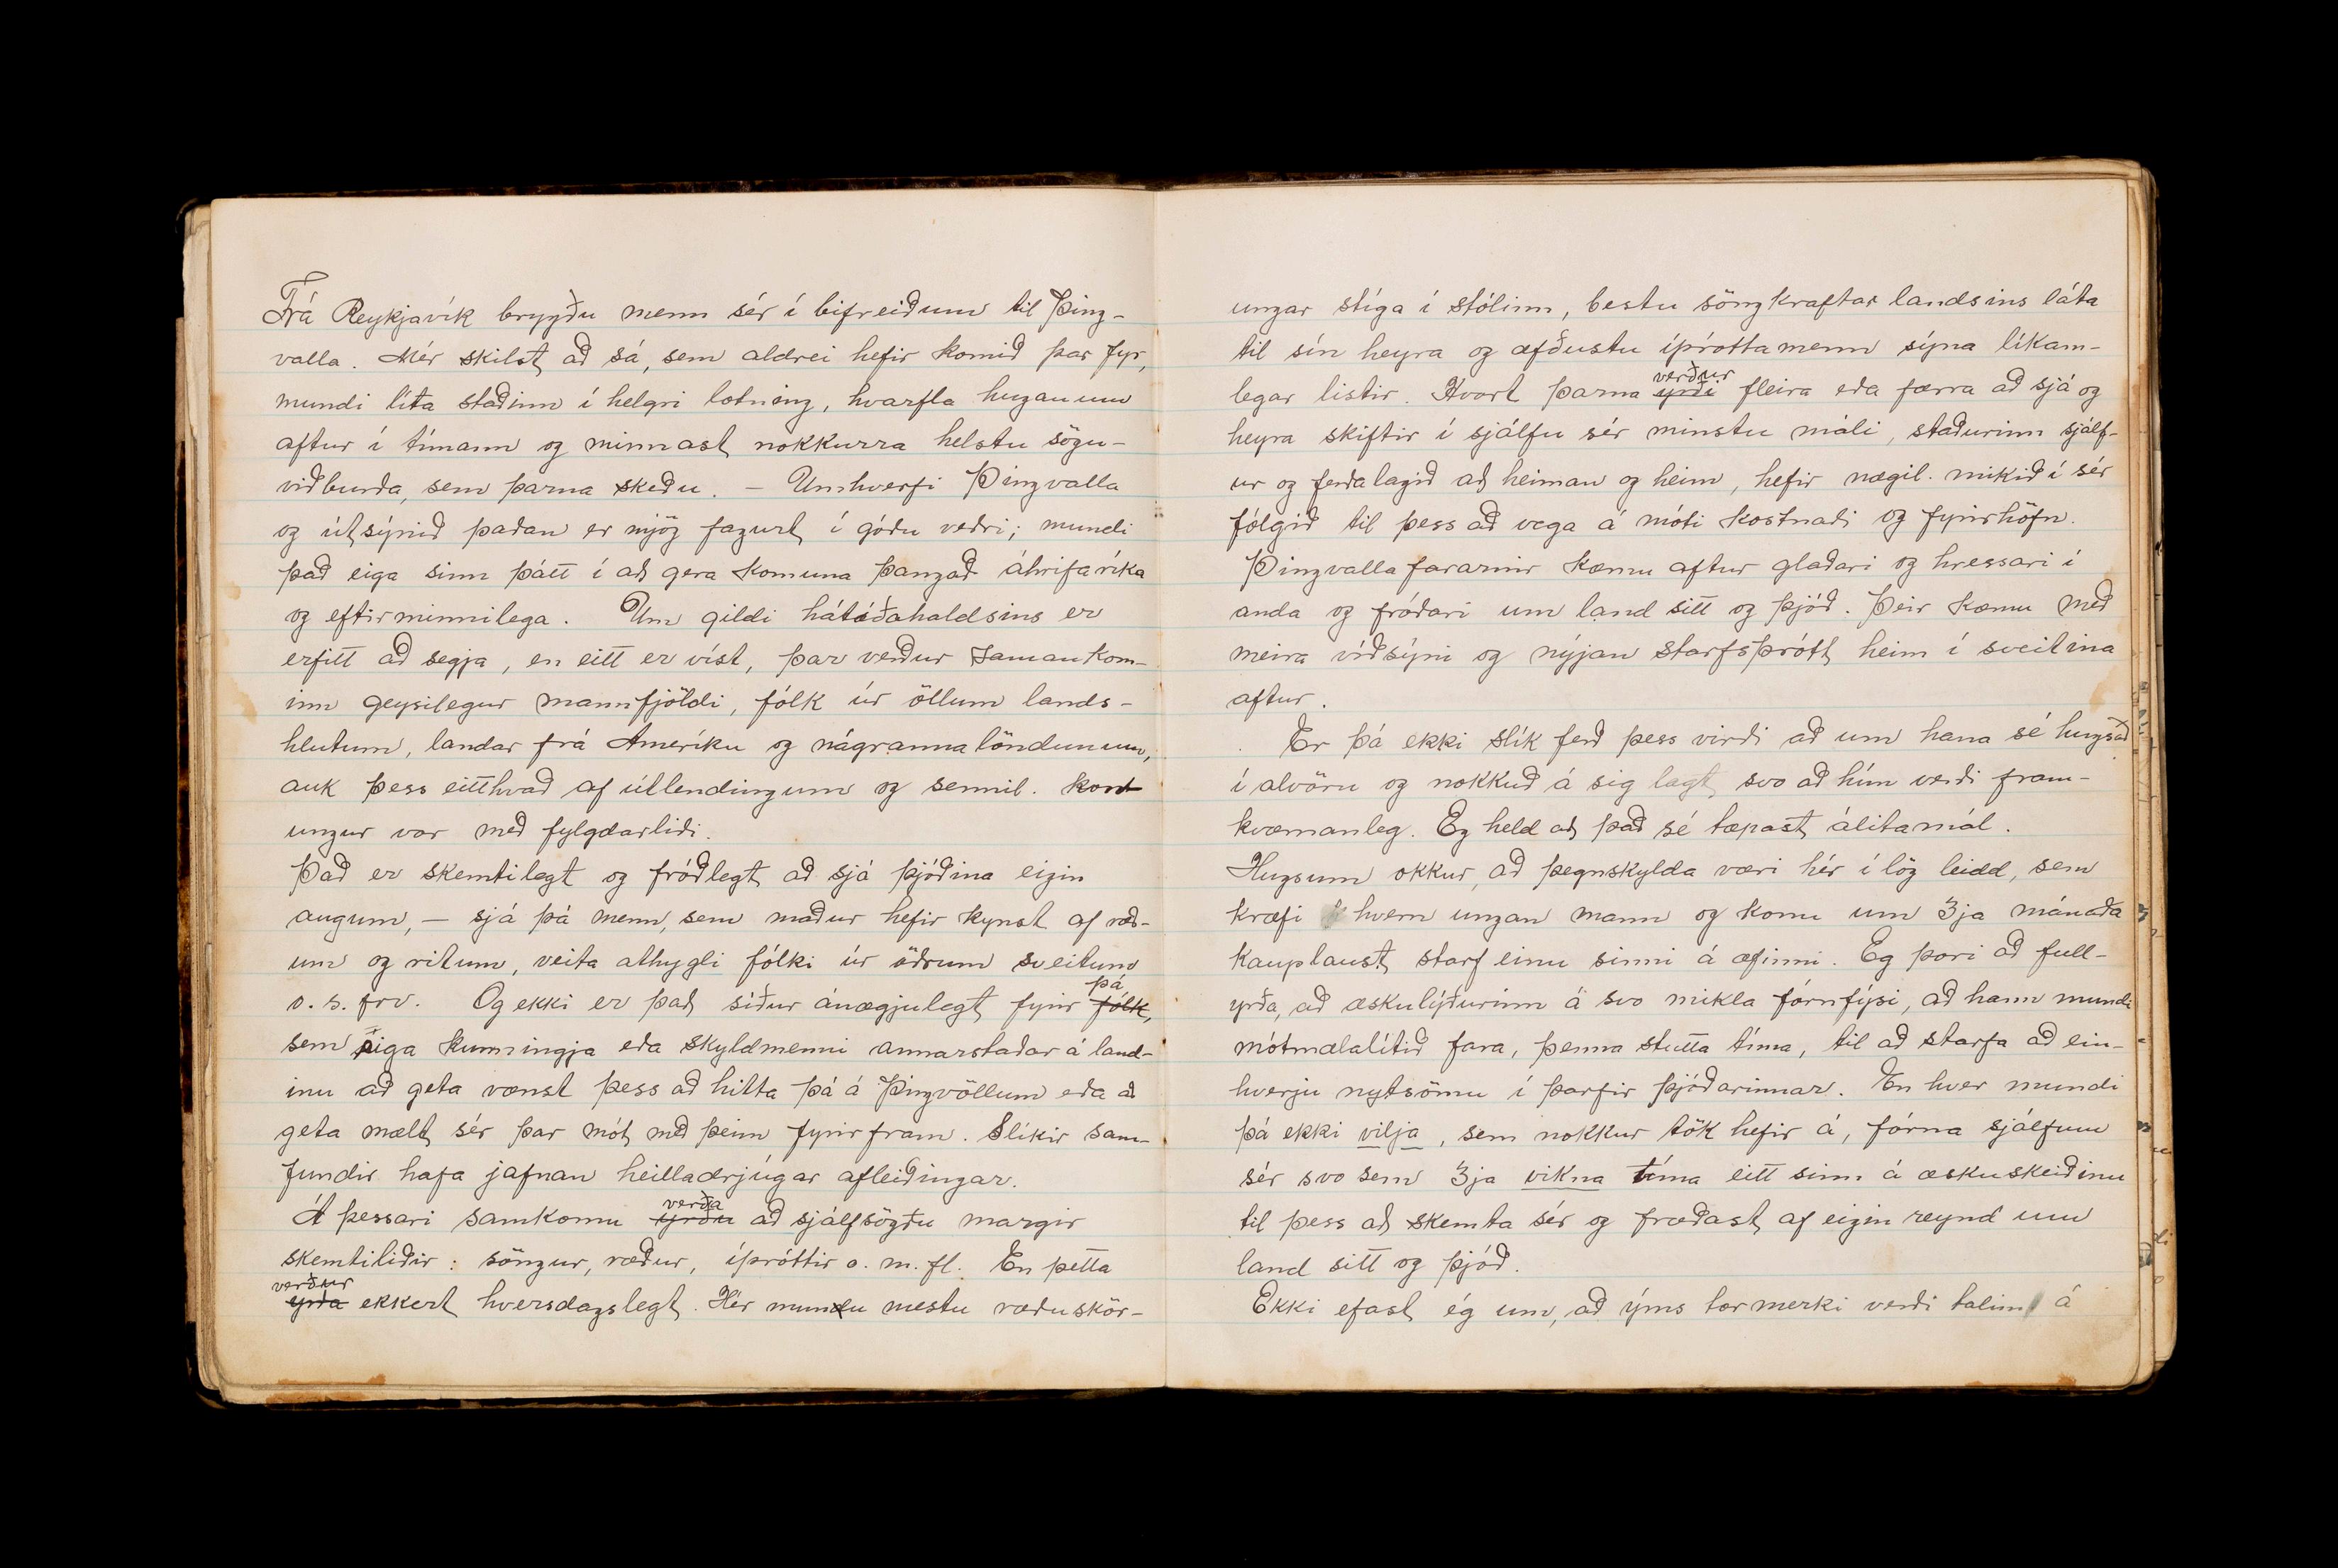 Frá Reykjavík brygðu menn sér í bifreiðum til Þing-
valla. Mér skilst að sá, sem aldrei hefir komið þar fyr,
mundi líta staðinn í helgri lotning, hvarfla huganum
aftur í tímann og minnast nokkurra helstu sögu-
viðburða, sem þarna skeðu. - Umhverfi Þingvalla
og útsýnið þaðan er mjög fagurt í góðu veðri; mundi
það eiga sinn þátt í að gera komuna þangað áhrifaríka
og eftirminnilega. Um gildi hátíðahaldsins er
erfitt að segja, en eitt er víst, þar verður samankom-
inn geysilegur mannfjöldi, fólk úr öllum lands-
hlutum, landar frá Ameríku og nágrannalöndunum,
auk þess eitthvað af útlendingum og sennil. kon
ungur vor með fylgdarliði.
Það er skemtilegt og fróðlegt að sjá þjóðina eigin
augum, - sjá þá menn, sem maður hefir kynst af ræð-
um og ritum, veita athygli fólki úr öðrum sveitum
o. s. frv. Og ekki er það síður ánægjulegt fyrir fólk, þá
sem eiga kunningja eða skyldmenni annarstaðar á land-
inu að geta vænst þess að hitta þá á Þingvöllum eða að
geta mælt sér þar mót með þeim fyrirfram. Slíkir sam-
fundir hafa jafnan heilladrjúgar afleiðingar.
Á þessari samkomu yrðu verða að sjálfsögðu margir
skemtiliðir: söngur, ræður, íþróttir o. m. fl. En þetta
yrða verður ekkert hversdagslegt. Hér mundu mestu ræðuskör-
ungar stíga í stólinn, bestu söngkraftar landsins láta
til sín heyra og æfðustu íþróttamenn sýna líkam-
legar listir. Hvort þarna yrði verður fleira eða færra að sjá og
heyra skiftir í sjálfu sér minstu máli, staðurinn sjálf-
ur og ferðalagið að heiman og heim, hefir nægil. mikið í sér
fólgið til þess að vega á móti kostnaði og fyrirhöfn.
Þingvallafararnir kæmu aftur glaðari og hressari í
anda og fróðari um land sitt og þjóð. Þeir kæmu með
meira víðsýni og nýjan starfsþrótt heim í sveitina
aftur.
Er þá ekki slík ferð þess virði að um hana sé hugsað
í alvöru og nokkuð á sig lagt svo að hún verði fram-
kvæmanleg. Eg held að það sé tæpast álitamál.
Hugsum okkur, að þegnskylda væri hér í lög leidd, sem
kræfi hvern ungan mann og konu um 3ja mánaða
kauplaust starf einu sinni á æfinni. Eg þori að full-
yrða, að æskulýðurinn á svo mikla fórnfýsi, að hann mundi
mótmælalítið fara, þenna stutta tíma, til að starfa að ein-
hverju nytsömu í þarfir þjóðarinnar. En hver mundi
þá ekki vilja, sem nokkur tök hefir á, fórna sjálfum
sér svo sem 3ja vikna tíma eitt sinn á æskuskeiðinu
til þess að skemta sér og fræðast af eigin reynd um
land sitt og þjóð.
Ekki efast ég um, að ýms tormerki verði talin á